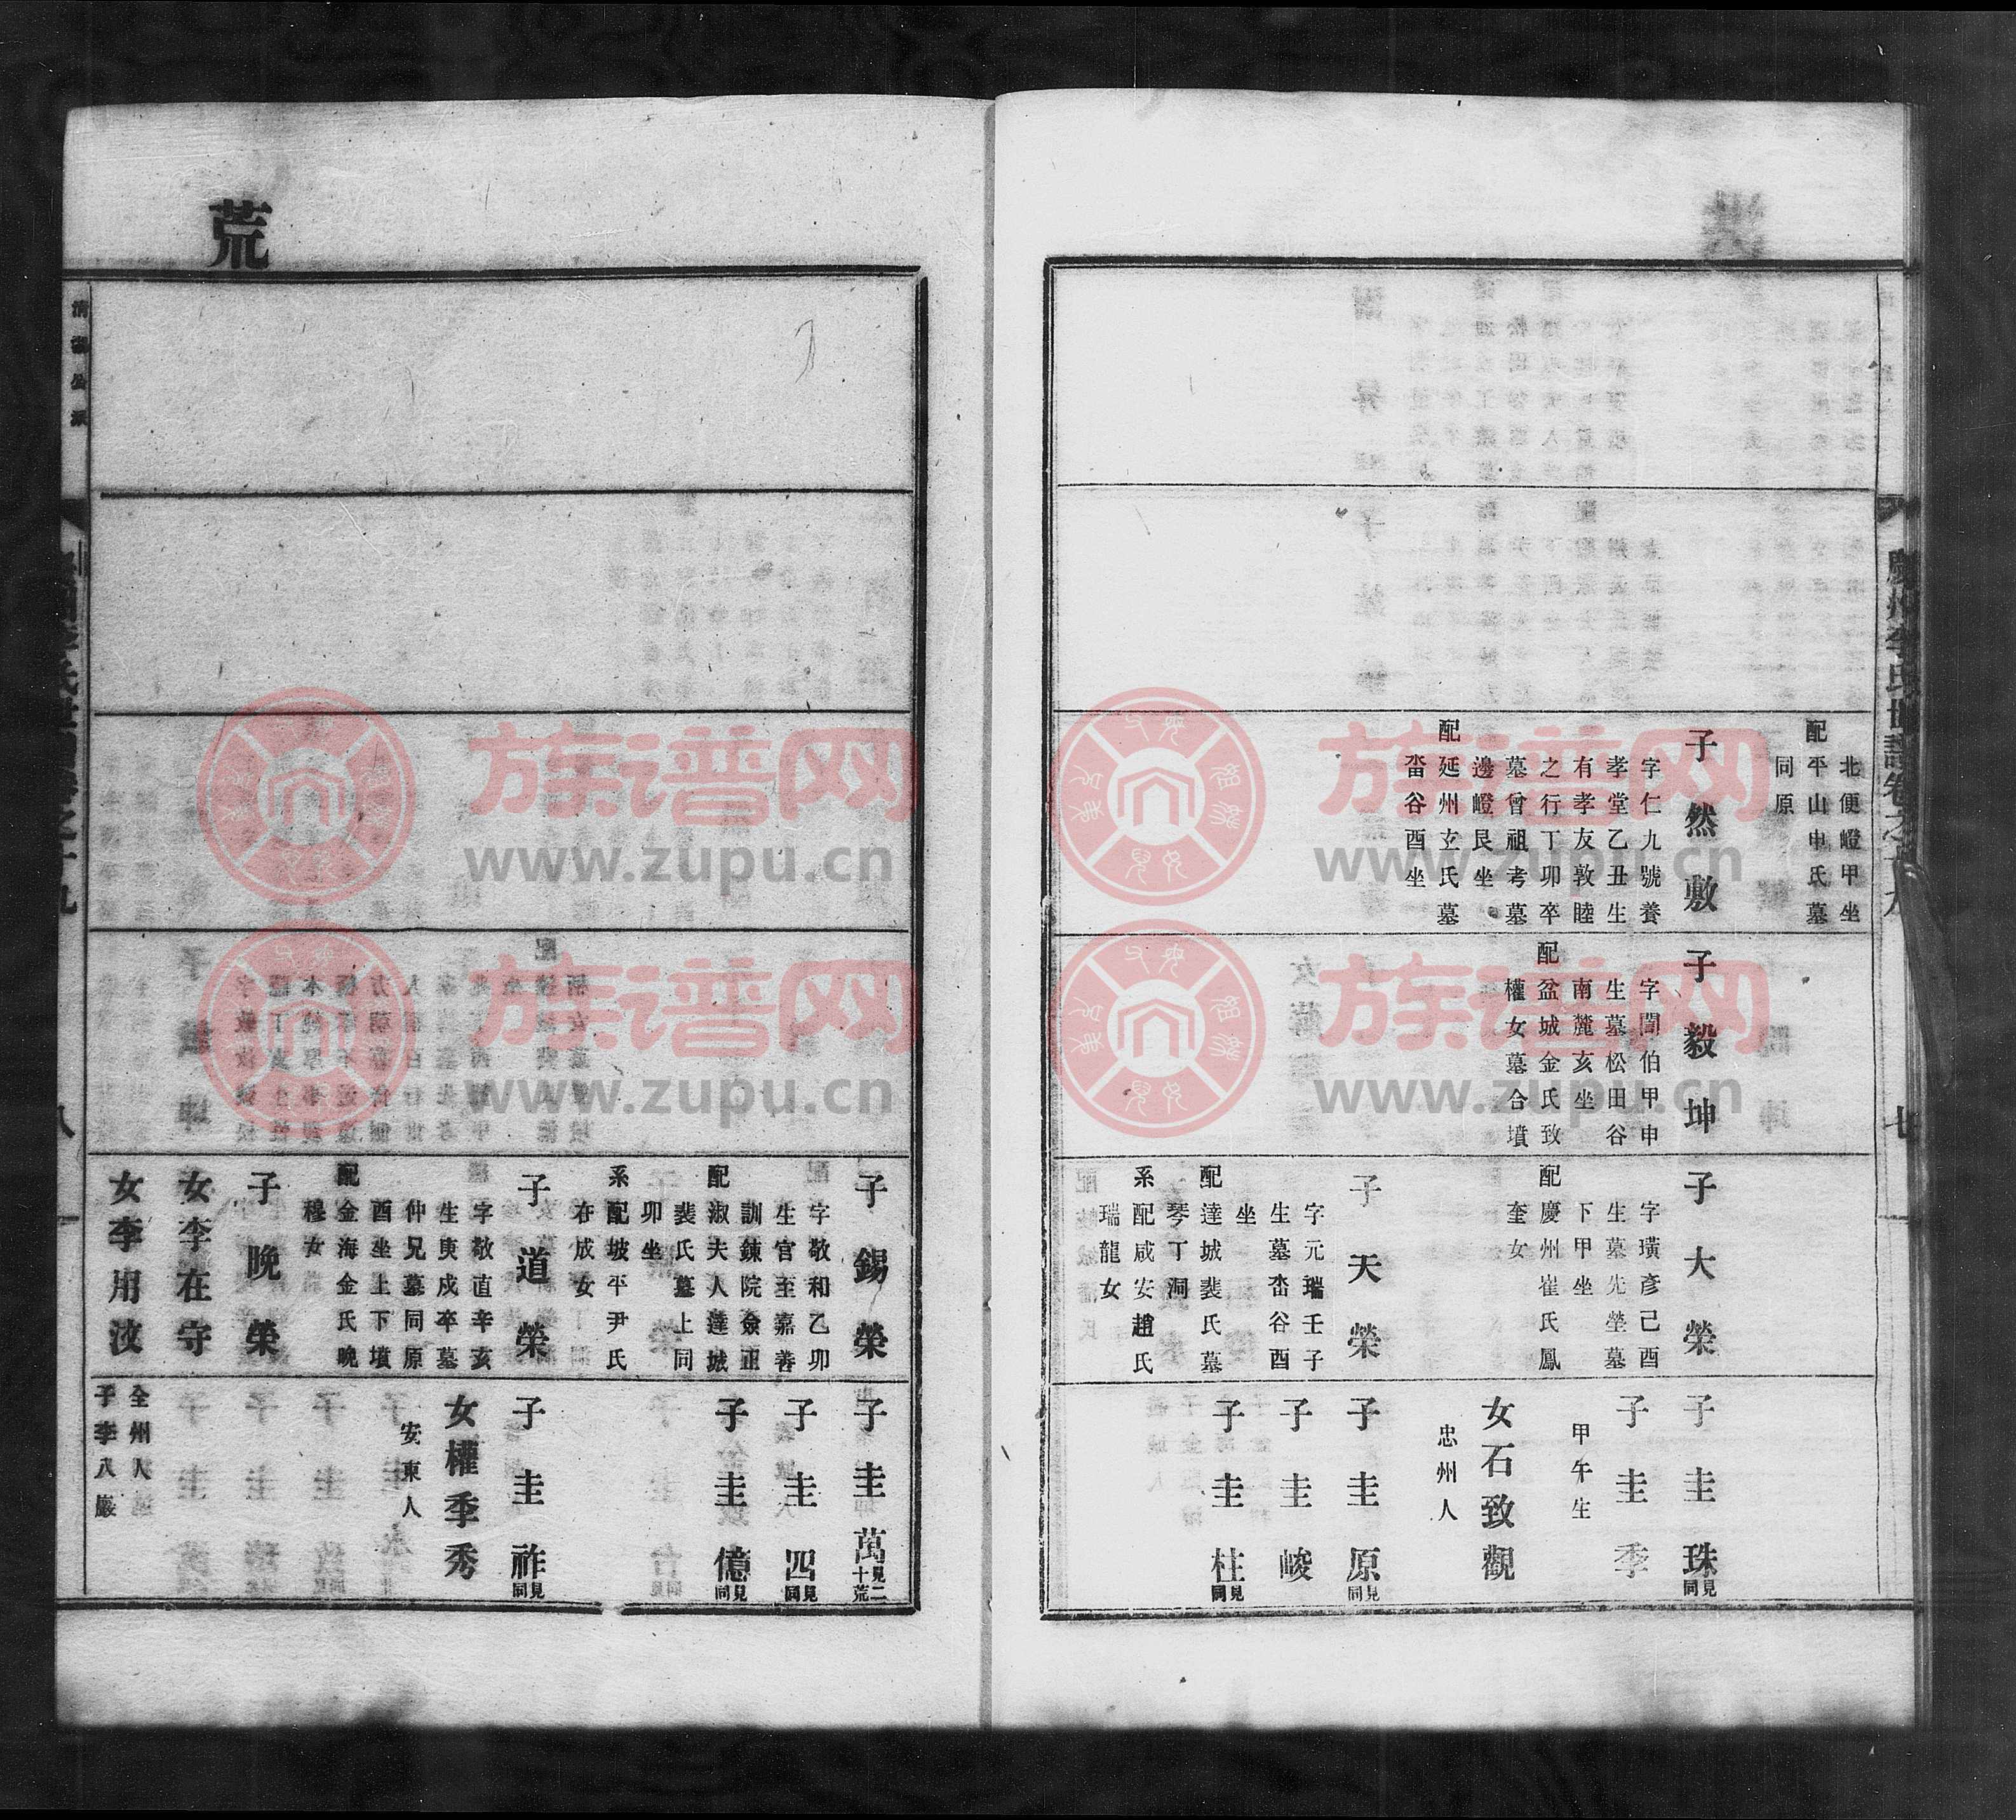 慶州李氏世譜卷之十九
七
北便嶝甲坐
配平山申氏墓
同原
子然敷
字仁九號養
孝堂乙丑生
有孝友敦睦
之行丁卯卒
墓曾祖考墓
邊嶝艮坐
配延州玄氏墓
畓谷酉坐
子毅坤
字誾伯甲申
生墓松田谷
南麓亥坐
配盆城金氏致
權女墓合墳
子大榮
字璜彥己酉
生墓先塋墓
下甲坐
配慶州崔氏鳳
奎女
子天榮
字元瑞壬子
生墓畓谷酉
坐
配達城裴氏墓
琴丁洞
系配咸安趙氏
瑞龍女
子圭珠 見同
子圭季
甲午生
女石致觀
忠州人
子圭原 見同
子圭峻
子圭柱 見同
荒
子錫榮
字敬和乙卯
生官至嘉善
訓鍊院僉正
配淑夫人達城
裴氏墓上同
卯坐
系配坡平尹氏
在成女
子道榮
字敬直辛亥
生庚戌卒墓
仲兄墓同原
酉坐上下墳
配金海金氏晩
穆女
子晩榮
女李在守
女李用汶
子圭萬 見二十荒
子圭四 見同
子圭億 見同
子圭祚 見同
女權季秀
安東人
全州人
子李八巖
八
族谱网
www.zupu.cn
族谱网
www.zupu.cn
族谱网
www.zupu.cn
族谱网
www.zupu.cn